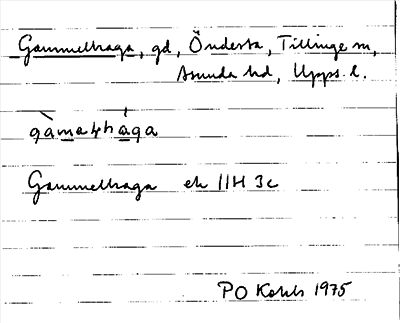 Gammelhaga, gd, Öndersta, Tillinge sn,
Åsunda hd, Upps. l.
Gammelhaga ek 11H 3c
1975